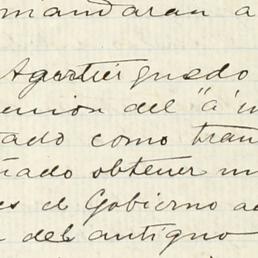 mandaran a
Agartier quedo
enion del "á
ado como tran
ñado obtener
es el Gobierno a
del antiguo